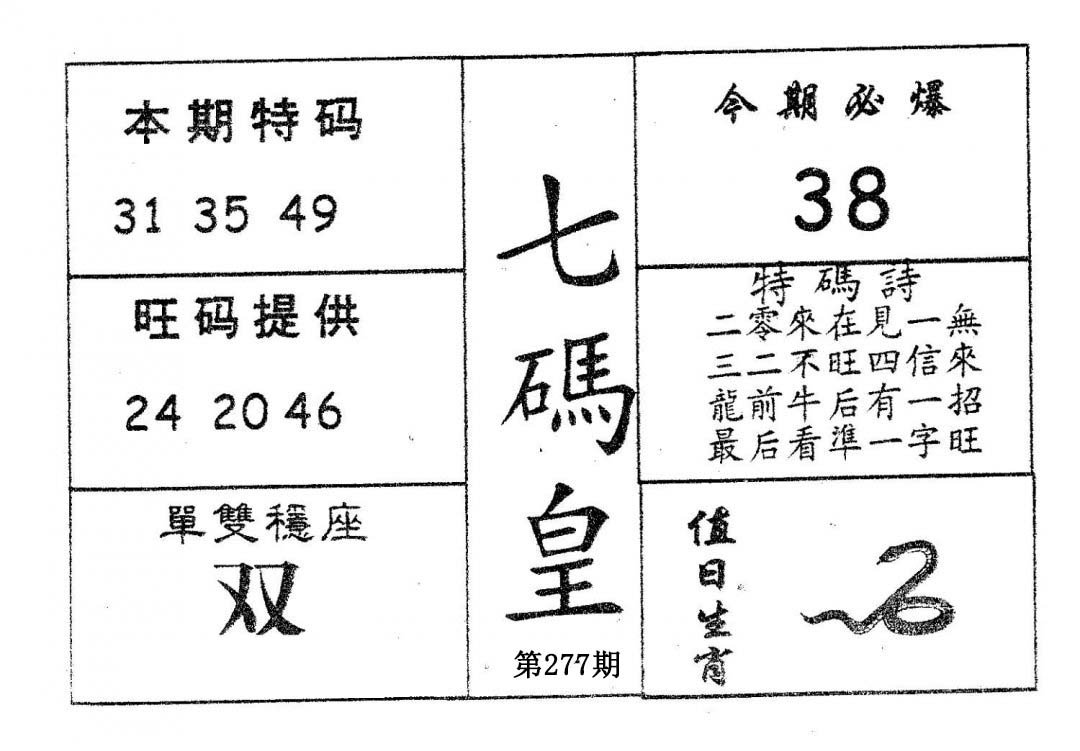 本期特码
31 35 49
旺码提供
24 20 46
單雙穩座
双
七碼皇
第277期
今期必爆
38
特碼詩
二零來在見一無
三二不旺四信來
龍前牛后有一招
最后看準一字旺
值日生肖